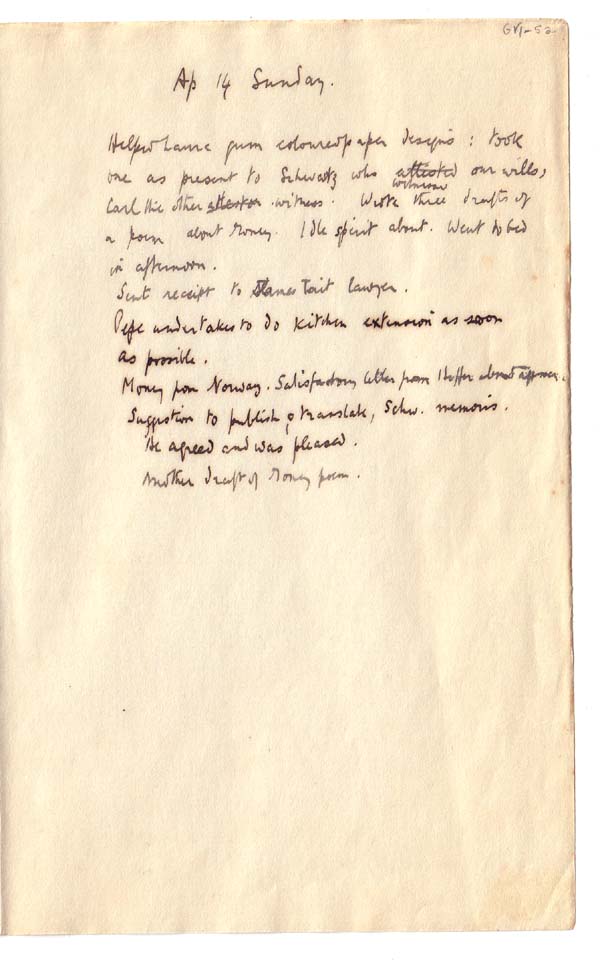 GVI-52
Ap 14 Sunday.
Helped Laura gum coloured paper designs : took
one as present to Schwartz who attested our wills,
witnessed
Carl the other attestor witness. Wrote three drafts of
a poem about Money. Idle spirit about. Went to bed
in afternoon.
Sent receipt to James Tait lawyer.
Pepe undertakes to do kitchen extension as soon
as possible.
Money from Norway. Satisfactory letter from
Suggestion to publish, & translate, Schw. memoirs.
He agreed and was pleased.
Another draft of Money poem.